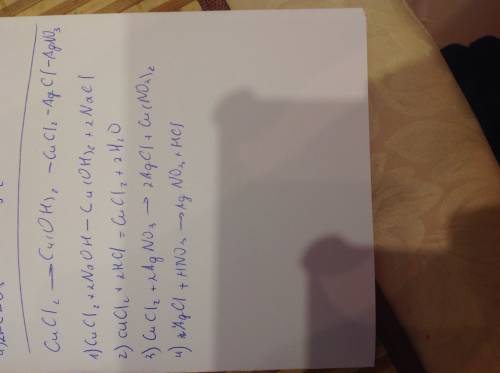 CuCl₂ → Cu(OH)₂ – CuCl₂ – AgCl – AgNO₃
1) CuCl₂ + 2NaOH – Cu(OH)₂ + 2NaCl
2) Cu(OH)₂ + 2HCl = CuCl₂ + 2H₂O
3) CuCl₂ + 2AgNO₃ → 2AgCl + Cu(NO₃)₂
4) AgCl + HNO₃ → AgNO₃ + HCl